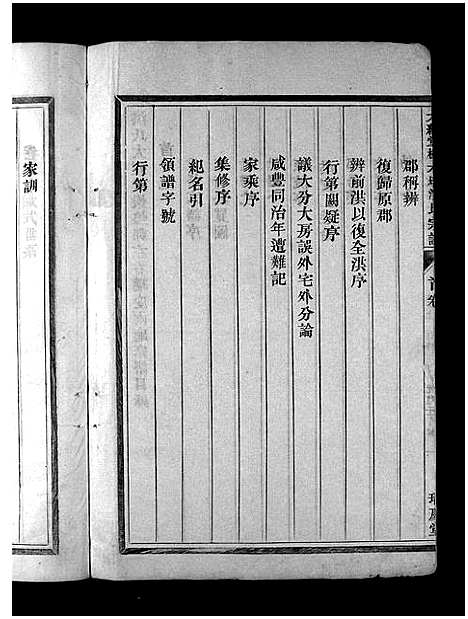 郡稱辨
復歸原郡
辨前洪以復全洪序
行第闕疑序
議大分大房誤外宅外分論
咸豐同治年遭難記
家乘序
集修序
紀名引
領譜字號
行第
家訓
首卷